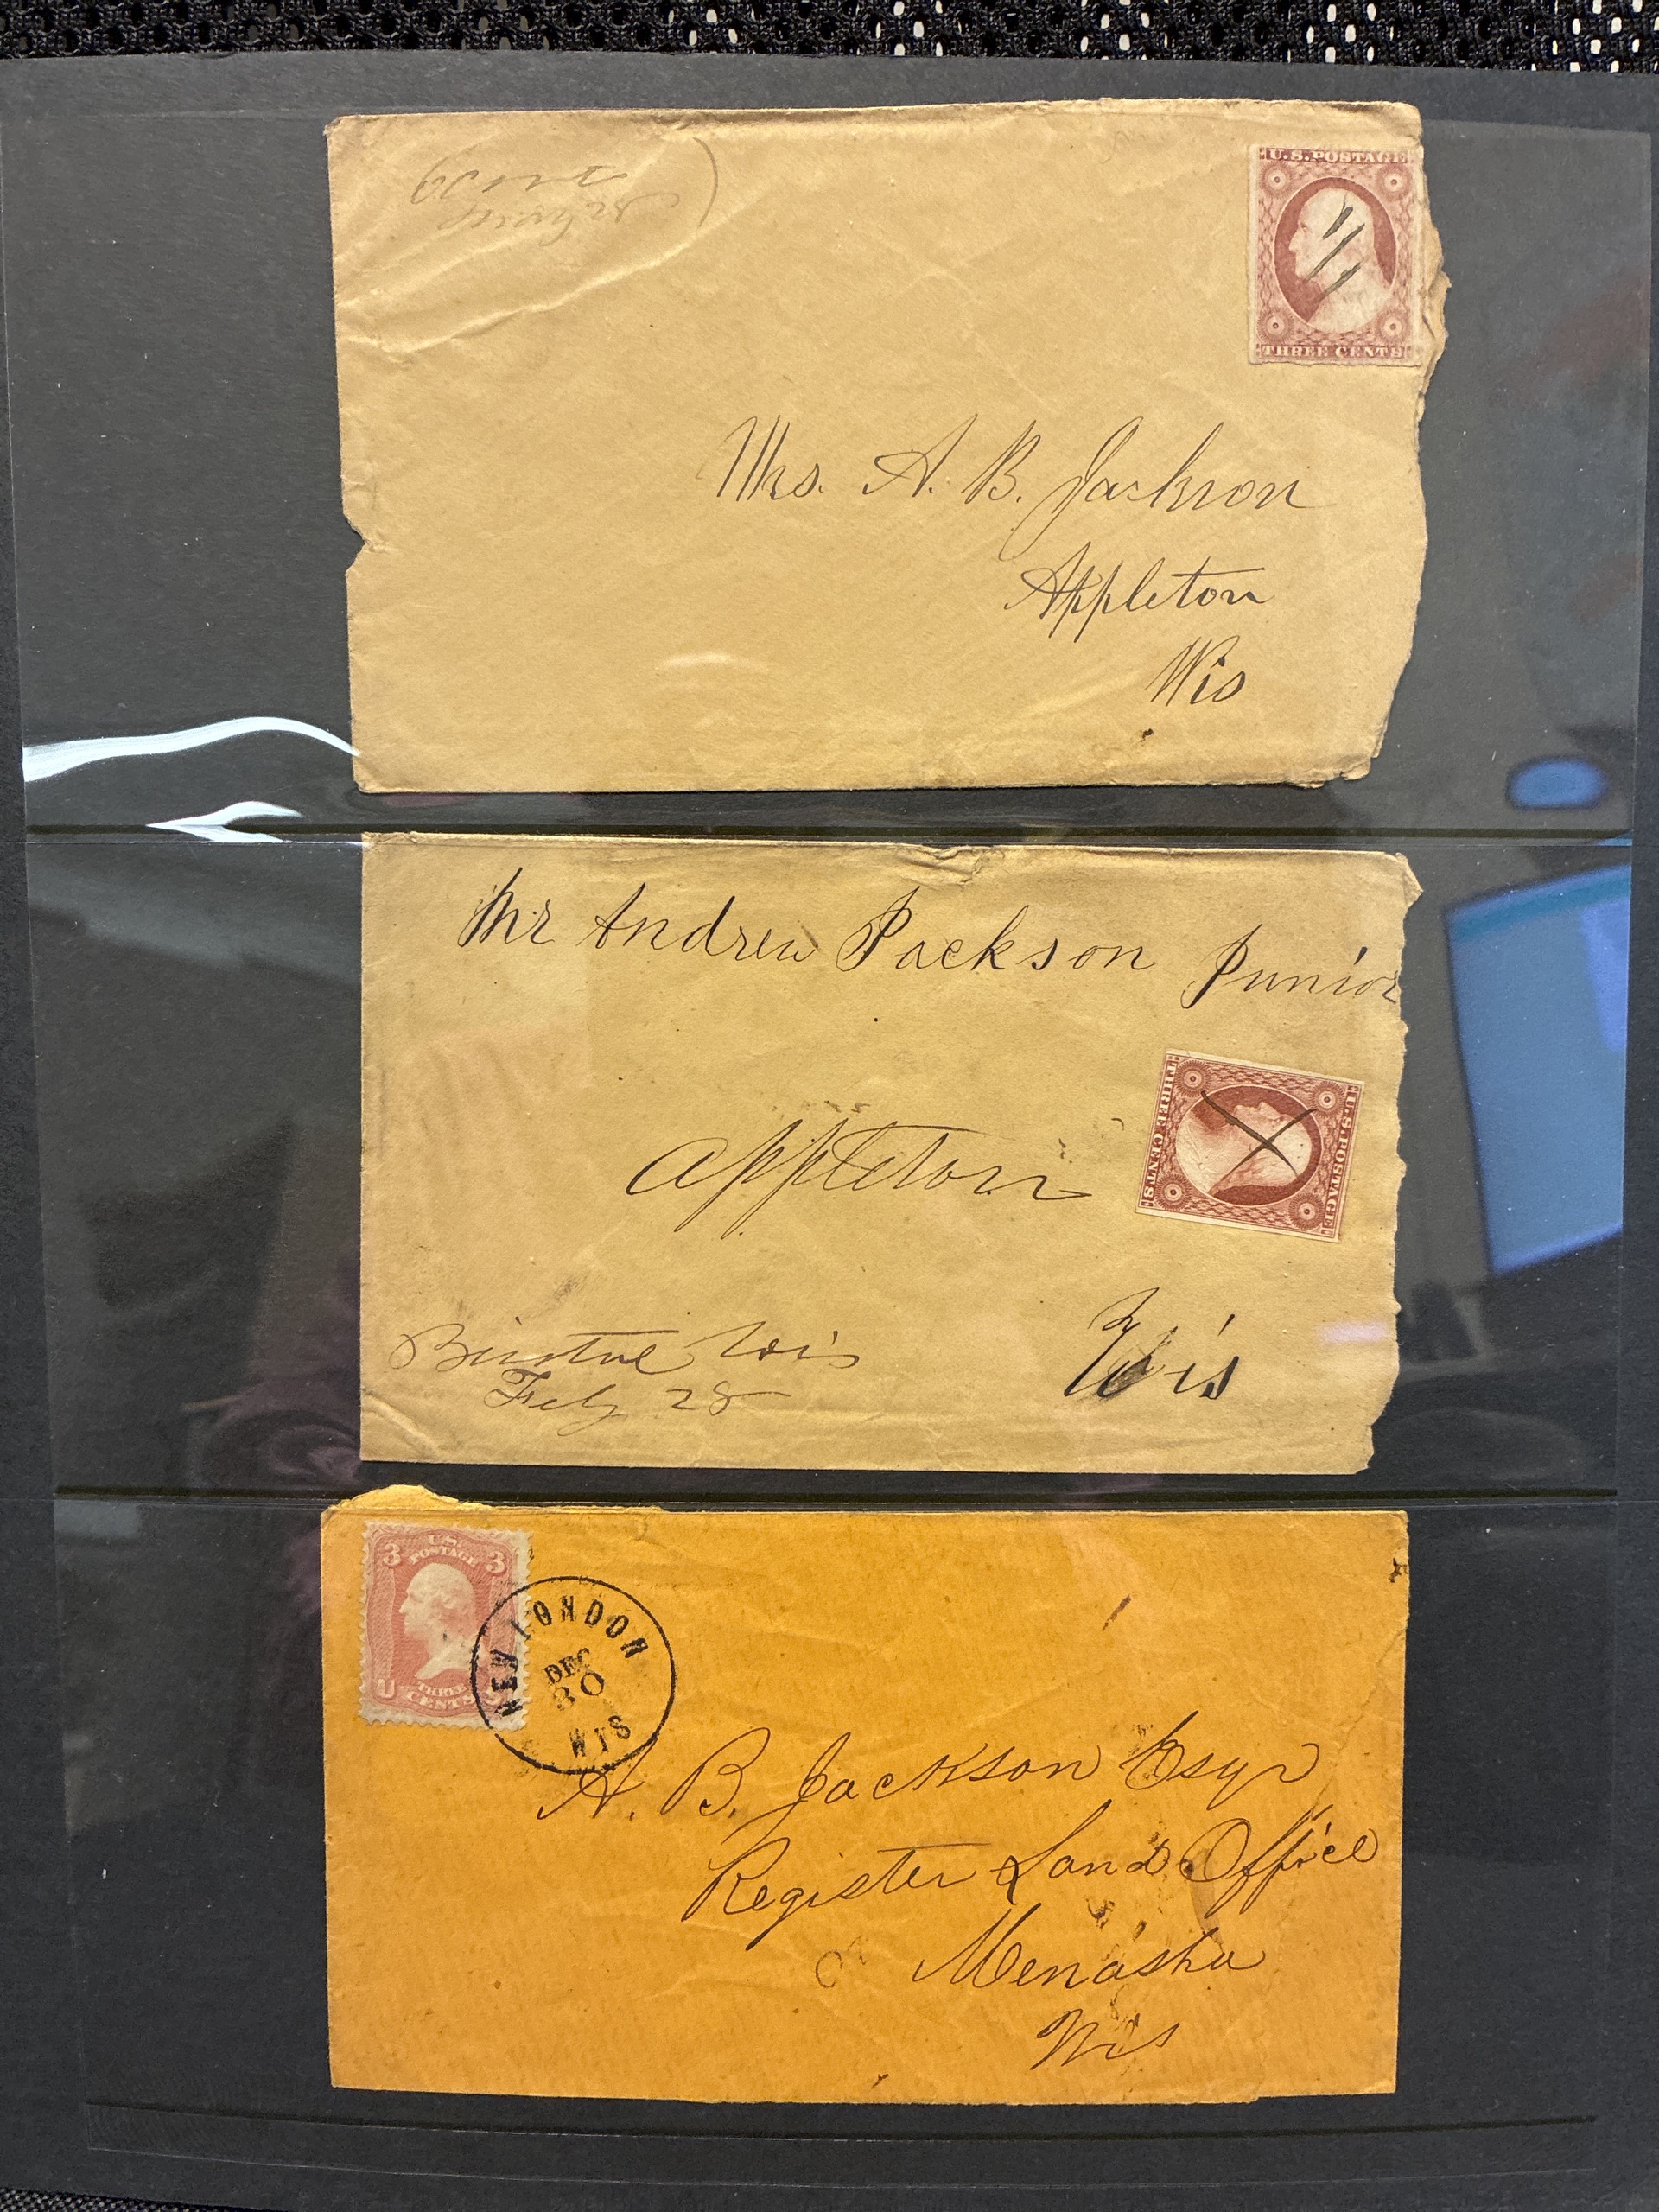 U.S. POSTAGE
THREE CENTS
Mrs. A. B. Jackson
Appleton
Wis
Mr Andrew Jackson Junior
U.S. POSTAGE
THREE CENTS
Appleton
Wis
Wis
Feby 28
3 U.S. POSTAGE 3
U THREE CENTS S
NEW LONDON
DEC
30
WIS
A. B. Jackson Esqr
Register Land Office
Menasha
Wis